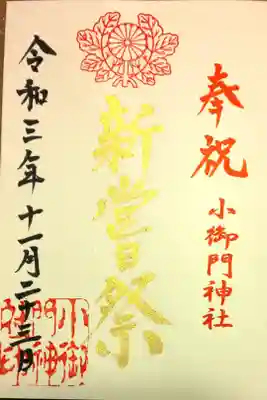 奉祝
小御門神社
新嘗祭
令和三年十一月二十三日
小御
門神
社印